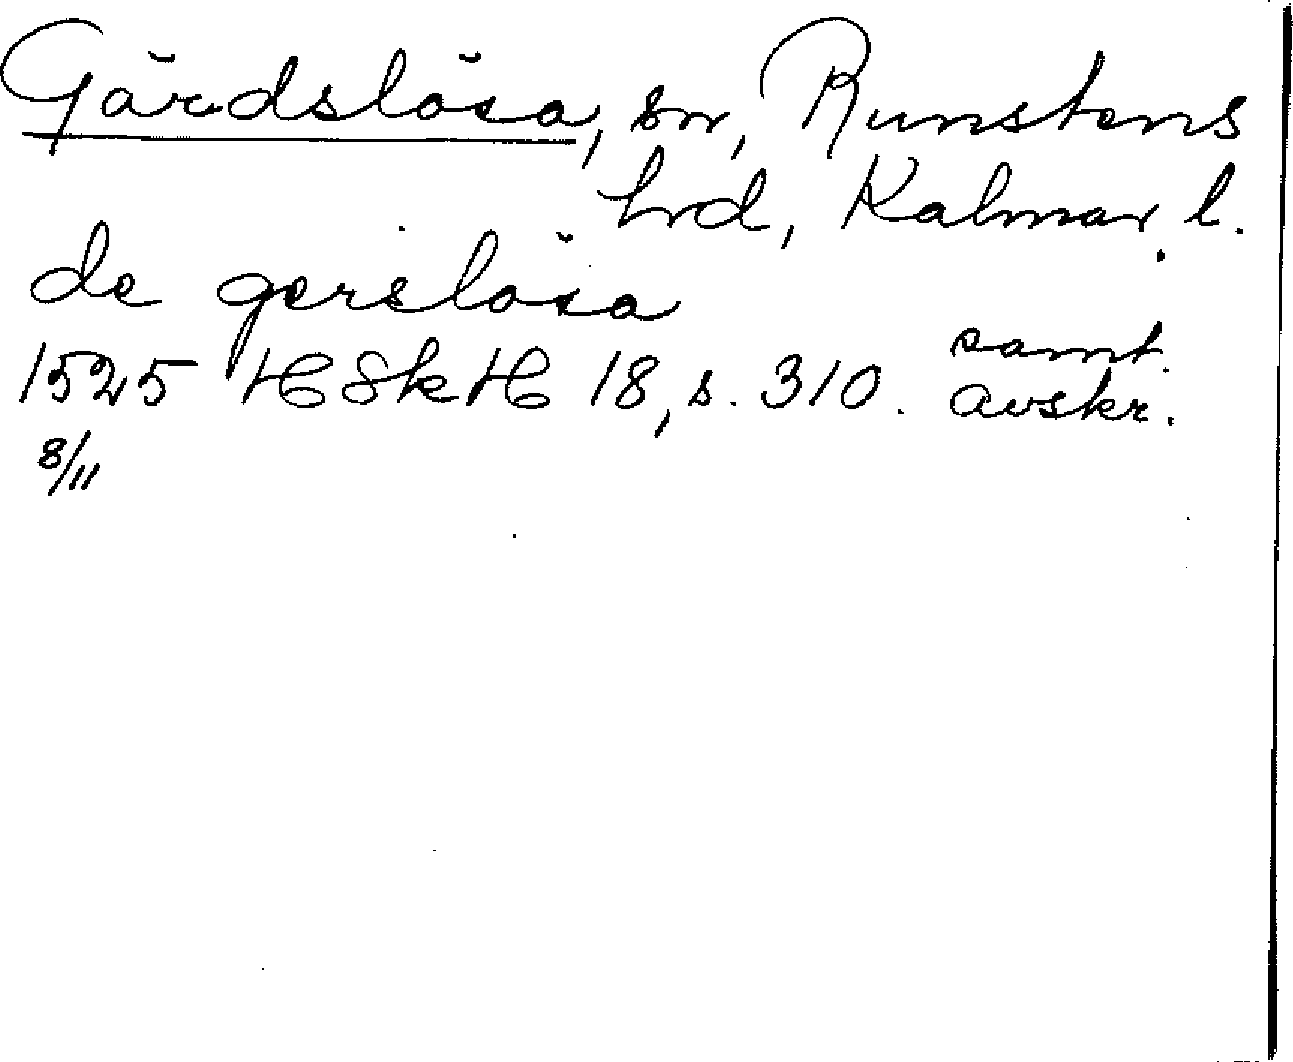 Gärdslösa, sn, Runstens
hrd, Kalmar l.
de gerslösa
1525 HSkH 18, s. 310. samt. avskr.
8/11